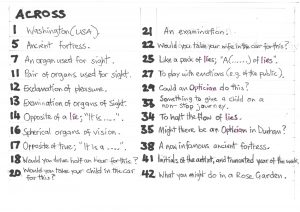 ACROSS
1 Washington (USA).
5 Ancient fortress.
7 An organ used for sight.
11 Pair of organs used for sight.
12 Exclamation of pleasure.
13 Examination of organs of sight.
14 Opposite of a lie; "It is .....".
16 Spherical organs of vision.
17 Opposite of true; "It is a .....".
18 Would you drive half an hour for this?
20 Would you take your child in the car
for this?
21 An examination:
22 Would you take your wife in the car for this?
25 Like a pack of lies; "A(......) of lies".
27 To play with emotions (e.g. of the public).
29 Could an Optician do this?
33 Something to give a child on a
non-stop journey.
34 To halt the flow of lies.
35 Might there be an Optician in Durham?
38 A now infamous ancient fortress.
41 Initials of the artist, and truncated year of the work.
42 What you might do in a Rose Garden.